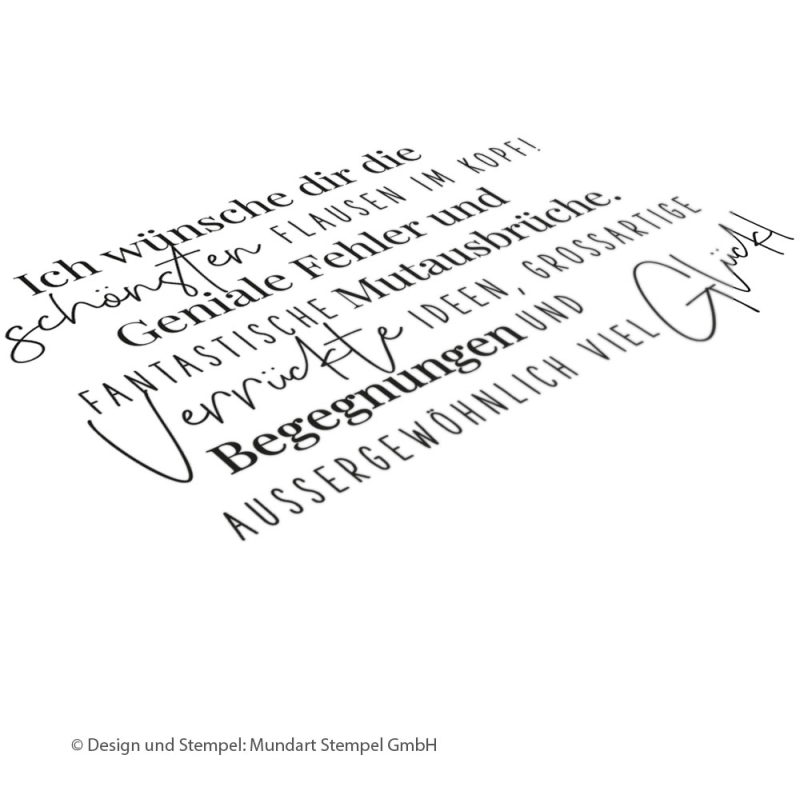 Ich wünsche dir die
schönsten FLAUSEN IM KOPF!
Geniale Fehler und
FANTASTISCHE Mutausbrüche.
Verrückte IDEEN, GROSSARTIGE
Begegnungen UND
AUSSERGEWÖHNLICH VIEL Glück!
© Design und Stempel: Mundart Stempel GmbH